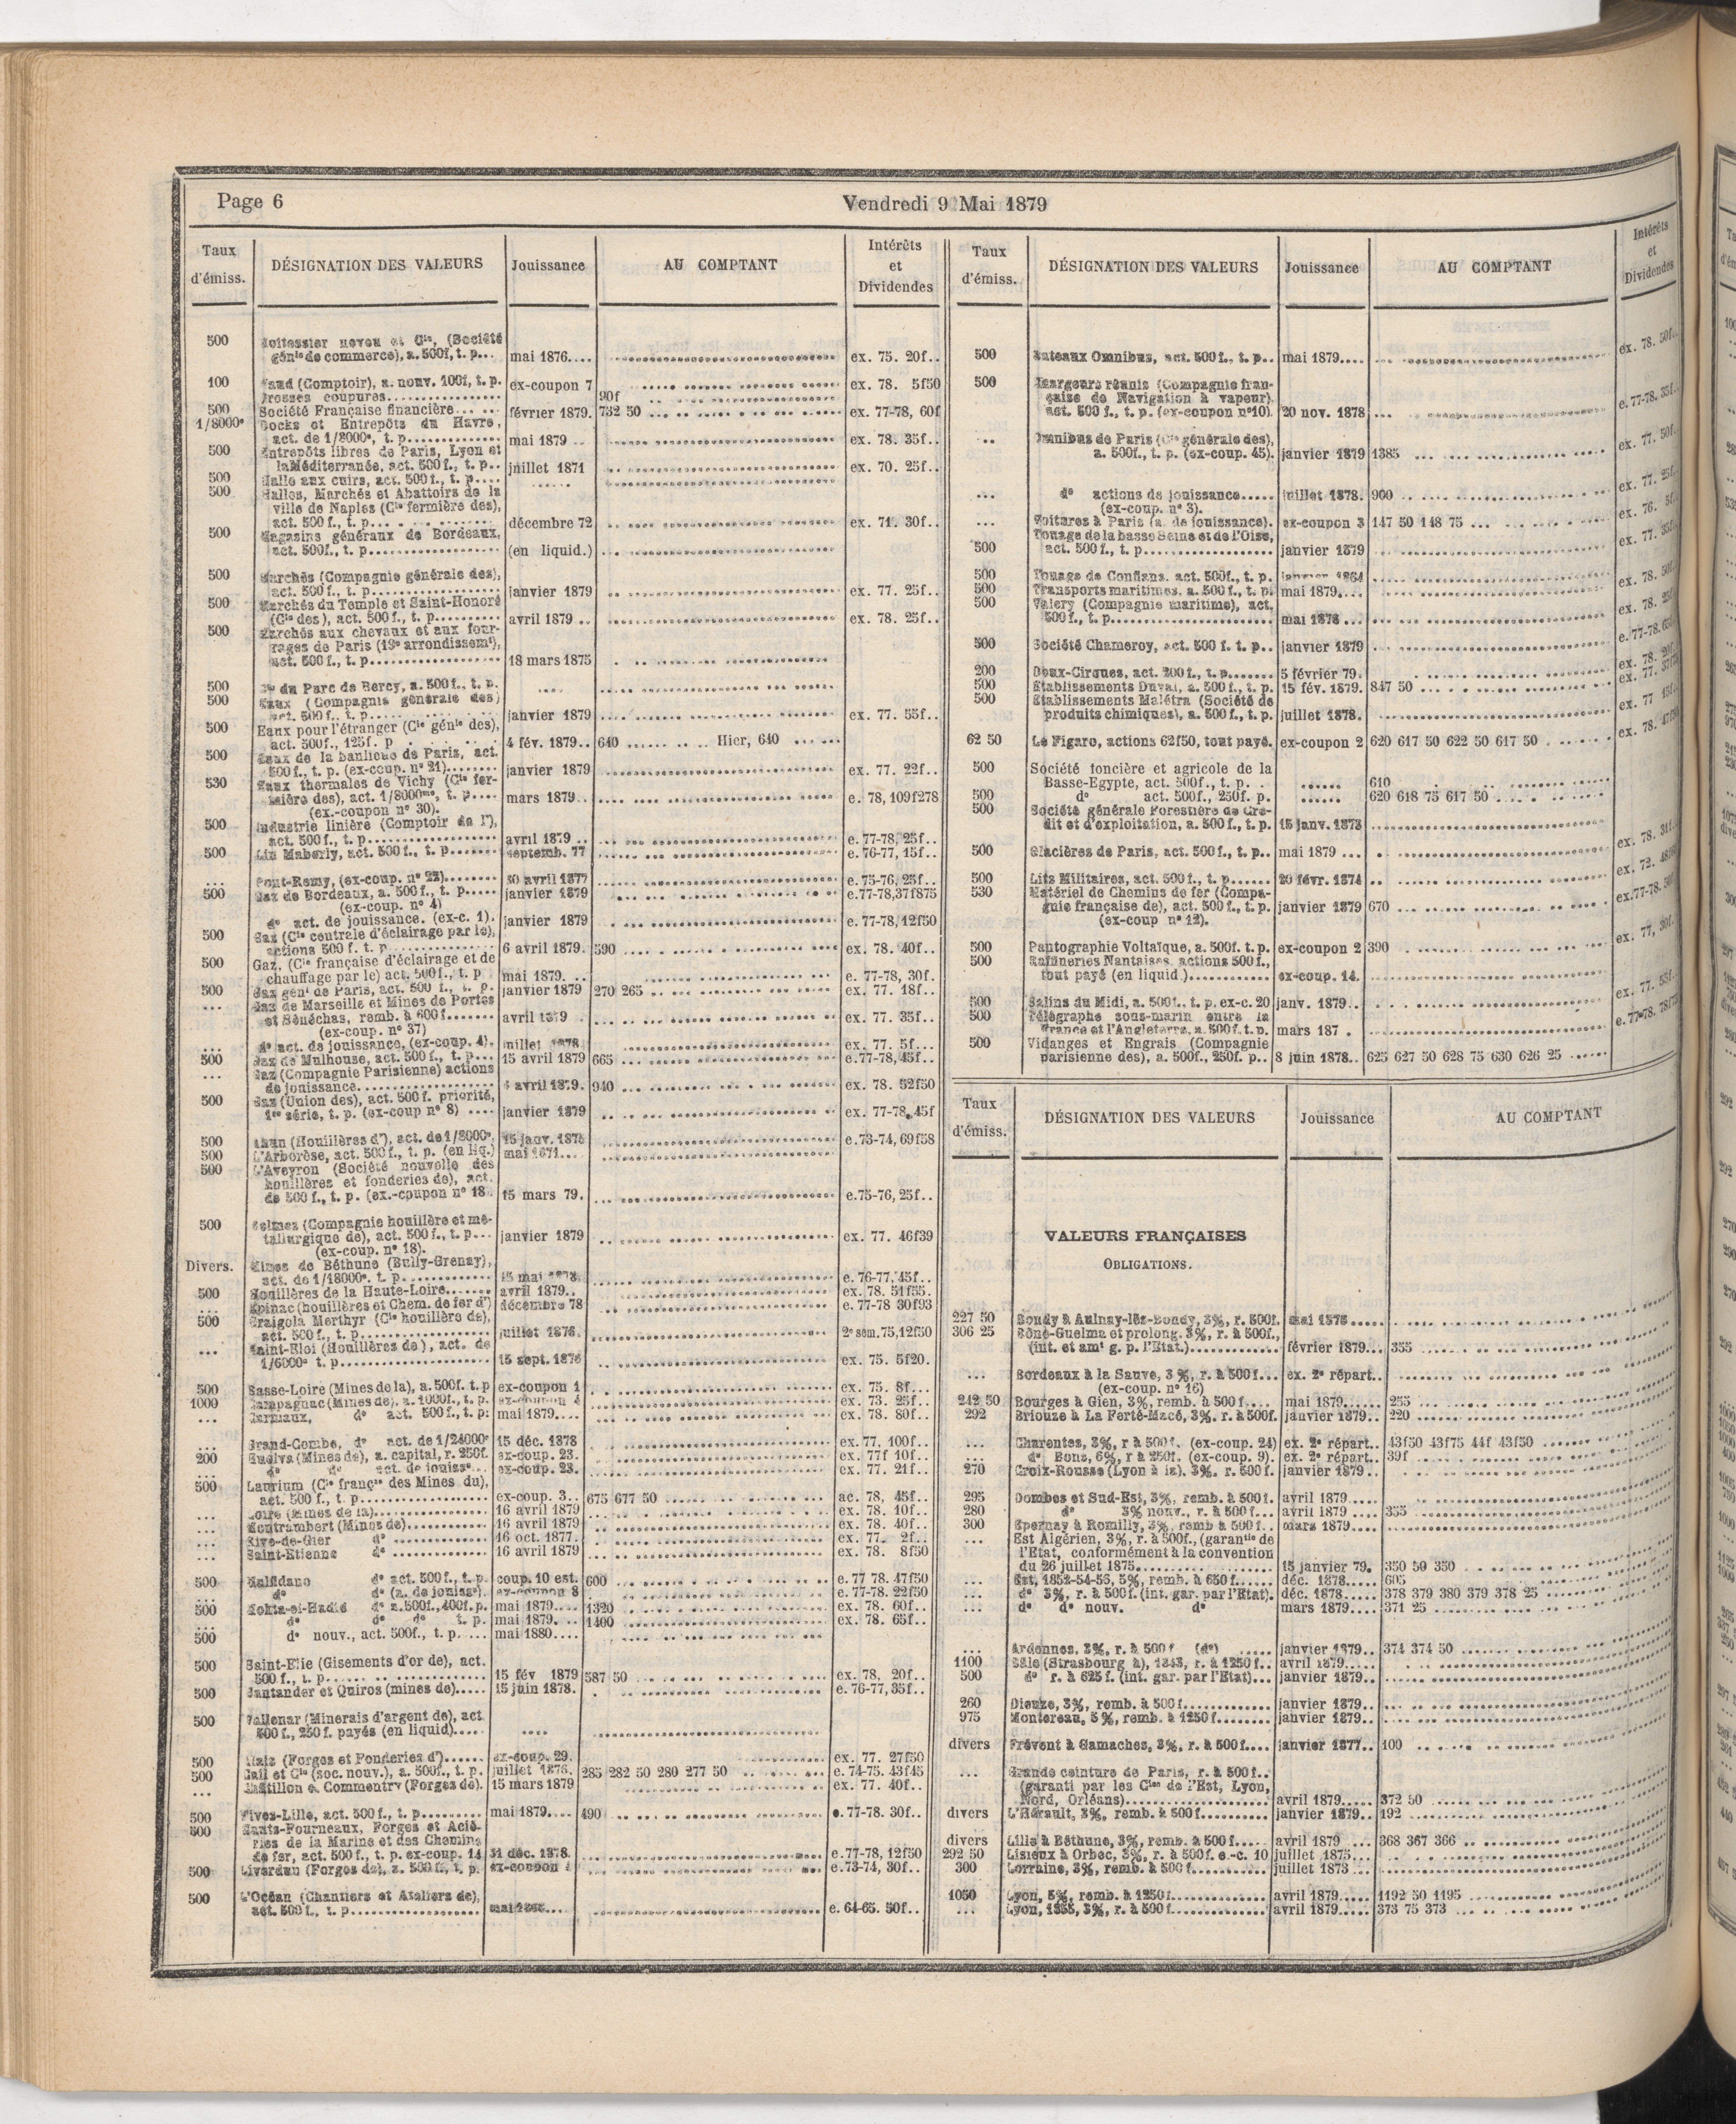 Page 6
Vendredi 9 Mai 1879
Taux d'émiss. DÉSIGNATION DES VALEURS Jouissance AU COMPTANT Intérêts et Dividendes
500 neveu et Cie, (Société
génle de commerce), a. 500f, t. p... mai 1876.... ex. 75. 20f..
100 (Comptoir), a. nouv. 100f, t. p. ex-coupon 7 ex. 78. 5f50
coupures 90f
500 Société Française financière février 1879. 732 50 ex. 77-78, 60f
1/8000e Docks et Entrepôts du Havre,
act. de 1/8000e, t. p. mai 1879 .. ex. 78. 35f..
500 Entrepôts libres de Paris, Lyon et
la Méditerranée, act. 500f., t. p.. juillet 1871 ex. 70. 25f..
500 Halle aux cuirs, act. 500f., t. p.
500 Halles, Marchés et Abattoirs de la
ville de Naples (Cie fermière des),
act. 500 f., t. p. décembre 72 ex. 71. 30f..
500 Magasins généraux de Bordeaux,
act. 500f., t. p. (en liquid.)
500 Marchés (Compagnie générale des),
act. 500 f., t. p. janvier 1879 ex. 77. 25f..
500 Marchés du Temple et Saint-Honoré
(Cie des), act. 500 f., t. p. avril 1879 .. ex. 78. 25f..
500 Marchés aux chevaux et aux four-
rages de Paris (13e arrondissemt),
act. 500 f., t. p. 18 mars 1875
500 Cie du Parc de Bercy, a. 500f., t. p.
500 Eaux (Compagnie générale des)
act. 500 f., t. p. janvier 1879 ex. 77. 55f..
500 Eaux pour l'étranger (Cie génle des),
act. 500f., 125f. p 4 fév. 1879.. 640 Hier, 640
500 Eaux de la banlieue de Paris, act.
500 f., t. p. (ex-coup. no 21) janvier 1879 ex. 77. 22f..
530 Eaux thermales de Vichy (Cie fer-
mière des), act. 1/8000me, t. p. mars 1879.. e. 78, 109f278
(ex.-coupon no 30).
500 Industrie linière (Comptoir de l'),
act. 500 f., t. p. avril 1879 .. e. 77-78, 25f..
500 Lin Maberly, act. 500 f., t. p. septemb. 77 e. 76-77, 15f..
... Pont-Remy, (ex-coup. no 22) 30 avril 1877 e. 75-76, 25f..
500 Gaz de Bordeaux, a. 500 f., t. p. janvier 1879 e. 77-78, 37f875
(ex-coup. no 4)
de act. de jouissance. (ex-c. 1). janvier 1879 e. 77-78, 12f50
500 Gaz (Cie centrale d'éclairage par le),
actions 500 f. t. p. 6 avril 1879. 590 ex. 78. 40f..
500 Gaz, (Cie française d'éclairage et de
chauffage par le) act. 500f., t. p mai 1879. e. 77-78, 30f.
500 Gaz génl de Paris, act. 500 f., t. p. janvier 1879 270 265 ex. 77. 18f..
... Gaz de Marseille et Mines de Portes
et Sénéchas, remb. à 600 f. avril 1879 ex. 77. 35f..
(ex-coup. no 37)
... de act. de jouissance, (ex-coup. 4). juillet 1878 ex. 77. 5f...
500 Gaz de Mulhouse, act. 500 f., t. p. 15 avril 1879 665 e. 77-78, 45f..
... Gaz (Compagnie Parisienne) actions
de jouissance avril 1879. 940 ex. 78. 52f50
500 Gaz (Union des), act. 500 f. priorité,
1re série, t. p. (ex-coup no 8) janvier 1879 ex. 77-78, 45f
500 (Houillères d'), act. de 1/8000e, 15 janv. 1875 e. 73-74, 69f58
500 L'Arborèse, act. 500 f., t. p. (en liq.) mai 1871
500 L'Aveyron (Société nouvelle des
houillères et fonderies de), act.
de 500 f., t. p. (ex.-coupon no 18 15 mars 79. e. 75-76, 25f..
500 Belmez (Compagnie houillère et mé-
tallurgique de), act. 500 f., t. p... janvier 1879 ex. 77. 46f39
(ex-coup. no 18).
Divers. Mines de Béthune (Bully-Grenay),
act. de 1/18000e. t. p. 15 mai 1878. e. 76-77, 45f..
500 Houillères de la Haute-Loire avril 1879.. ex. 78. 51f55.
... Epinac (houillères et Chem. de fer d') décembre 78 e. 77-78 30f93
500 Graigola Merthyr (Cie houillère de),
act. 500 f., t. p. juillet 1876. 2e sem. 75, 12f50
... Saint-Eloi (Houillères de), act. de
1/6000e t. p. 15 sept. 1876 ex. 75. 5f20.
500 Basse-Loire (Mines de la), a. 500f. t. p ex-coupon 1 ex. 75. 8f...
1000 Campagnac (Mines de), a. 1000f., t. p. ex-coupon 4 ex. 73. 25f..
... Carmaux, de act. 500 f., t. p: mai 1879.... ex. 78. 80f..
... Grand-Combe, de act. de 1/24000e 15 déc. 1878 ex. 77, 100f..
200 Huelva (Mines de), a. capital, r. 250f. ex-coup. 23. ex. 77f 10f..
... de de act. de jouiss ex-coup. 23. ex. 77. 21f..
500 Laurium (Cie françse des Mines du),
act. 500 f., t. p. ex-coup. 3.. 675 677 50 ac. 78, 45f..
... Loire (Mines de la) 16 avril 1879 ex. 78. 10f..
... Montrambert (Mines de) 16 avril 1879 ex. 78. 40f..
... Rive-de-Gier de 16 oct. 1877.. ex. 77. 2f..
... Saint-Etienne de 16 avril 1879 ex. 78. 8f50
500 Malfidano de act. 500 f., t. p. coup. 10 est. 600 e. 77 78. 47f50
... de de (a. de jouisse). ex-coupon 8 e. 77-78. 22f50
500 Mokta-el-Hadid de a. 500f., 400f. p. mai 1879.... 1320 ex. 78. 60f..
... de de de t. p. mai 1879. .. 1400 ex. 78. 65f..
500 de nouv., act. 500f., t. p. mai 1880....
500 Saint-Elie (Gisements d'or de), act.
500 f., t. p. 15 fév 1879 587 50 ex. 78, 20f..
500 Santander et Quiros (mines de) 15 juin 1878. e. 76-77, 35f..
500 Vallenar (Minerais d'argent de), act.
500 f., 250 f. payés (en liquid)
500 Alais (Forges et Fonderies d') ex-coup. 29. ex. 77. 27f50
500 Cail et Cie (soc. nouv.), a. 500f., t. p. juillet 1876. 285 282 50 280 277 50 e. 74-75. 43f45
... Châtillon & Commentry (Forges de). 15 mars 1879 ex. 77. 40f..
500 Fives-Lille, act. 500 f., t. p. mai 1879.... 490 e. 77-78. 30f..
500 Hauts-Fourneaux, Forges et Acié-
ries de la Marine et des Chemins
de fer, act. 500 f., t. p. ex-coup. 14 31 déc. 1878. e. 77-78, 12f50
500 Liverdun (Forges de), a. 500 f., t. p. ex-coupon e. 73-74, 30f..
500 L'Océan (Chantiers et Ateliers de),
act. 500 f., t. p. e. 64-65. 50f..
Taux d'émiss. DÉSIGNATION DES VALEURS Jouissance AU COMPTANT Intérêts et Dividendes
500 Bateaux Omnibus, act. 500 f., t. p.. mai 1879.... ex. 78. 50f..
500 Chargeurs réunis (Compagnie fran-
çaise de Navigation à vapeur).
act. 500 f., t. p. (ex-coupon no 10). 20 nov. 1878 e. 77-78. 35f..
... Omnibus de Paris (Cie générale des),
a. 500f., t. p. (ex-coup. 45). janvier 1879 1385 ex. 77. 50f..
... de actions de jouissance juillet 1878. 900 ex. 77. 25f..
(ex-coup. no 3).
... Voitures à Paris (a. de jouissance). ex-coupon 3 147 50 148 75 ex. 76. 5f..
Touage de la basse Seine et de l'Oise,
500 act. 500 f., t. p. janvier 1879 ex. 77. 35f..
500 Touage de Conflans. act. 500f., t. p. janvier 1864
500 Transports maritimes. a. 500 f., t. p. mai 1879.... ex. 78. 50f.
500 Valery (Compagnie maritime), act.
500 f., t. p. mai 1878 ex. 78. 25f.
500 Société Chameroy, act. 500 f. t. p.. janvier 1879 e. 77-78.
200 Deux-Cirques, act. 200 f., t. p. 5 février 79. ex. 78. 20f.
500 Etablissements Duval, a. 500 f., t. p. 15 fév. 1879. 847 50 ex. 77.
500 Etablissements Malétra (Société de
produits chimiques), a. 500 f., t. p. juillet 1878. ex. 77 15f..
62 50 Le Figaro, actions 62f50, tout payé. ex-coupon 2 620 617 50 622 50 617 50 ex. 78. 47f50
500 Société foncière et agricole de la
Basse-Egypte, act. 500f., t. p. 610
500 de act. 500f., 250f. p. 620 618 75 617 50
500 Société générale Forestière de Cré-
dit et d'exploitation, a. 500 f., t. p. 15 janv. 1873
500 Glacières de Paris, act. 500 f., t. p.. mai 1879 ... ex. 78. 31f..
500 Lits Militaires, act. 500 f., t. p. 20 févr. 1874 ex. 72.
530 Matériel de Chemins de fer (Compa-
gnie française de), act. 500 f., t. p. janvier 1879 670 ex. 77-78.
(ex-coup no 12).
500 Pantographie Voltaïque, a. 500f. t. p. ex-coupon 2 390 ex. 77, 30f..
500 Raffineries Nantaises, actions 500 f.,
tout payé (en liquid.) ex-coup. 14.
500 Salins du Midi, a. 500f.. t. p. ex-c. 20 janv. 1879.. ex. 77. 55f..
500 Télégraphe sous-marin entre la
France et l'Angleterre, a. 500 f. t. p. mars 187 . e. 77-78.
500 Vidanges et Engrais (Compagnie
parisienne des), a. 500f., 250f. p.. 8 juin 1878.. 625 627 50 628 75 630 626 25
Taux d'émiss. DÉSIGNATION DES VALEURS Jouissance AU COMPTANT
VALEURS FRANÇAISES
OBLIGATIONS.
227 50 Bondy à Aulnay-lès-Bondy, 3%, r. 500f. mai 1878
306 25 Bône-Guelma et prolong. 3%, r. à 500f.,
(int. et amt g. p. l'Etat.) février 1879... 355
... Bordeaux à la Sauve, 3 %, r. à 500 f... ex. 2e répart..
(ex-coup. no 16)
242 50 Bourges à Gien, 3%, remb. à 500 f. mai 1879 255
292 Briouze à La Ferté-Macé, 3%. r. à 500f. janvier 1879.. 220
... Charentes, 3%, r à 500 f. (ex-coup. 24) ex. 2e répart.. 43f50 43f75 44f 43f50
... de Bons, 6%, r à 250f. (ex-coup. 9). ex. 2e répart.. 39f
270 Croix-Rousse (Lyon à la). 3%. r. 500 f. janvier 1879..
295 Dombes et Sud-Est, 3%, remb. à 500 f. avril 1879
280 de 3% nouv., r. à 500 f... avril 1879 355
300 Epernay à Romilly, 3%, remb à 500 f.. mars 1879
... Est Algérien, 3%, r. à 500f., (garantie de
l'Etat, conformément à la convention
du 26 juillet 1875 15 janvier 79. 350 50 350
... Est, 1852-54-55, 5%, remb. à 650 f. déc. 1878 605
... de 3%, r. à 500 f. (int. gar. par l'Etat). déc. 1878 378 379 380 379 378 25
... de de nouv. de mars 1879 371 25
... Ardennes, 3%, r. à 500 f (de) janvier 1879.. 374 374 50
1100 Bâle (Strasbourg à), 1843, r. à 1250 f.. avril 1879
500 de r. à 625 f. (int. gar. par l'Etat)... janvier 1879..
260 Dieuze, 3%, remb. à 500 f. janvier 1879..
975 Montereau, 5%, remb. à 1250 f. janvier 1879..
divers Frévent à Gamaches, 3%, r. à 500 f. janvier 1877.. 100
... Grande ceinture de Paris, r. à 500 f..
(garanti par les Cies de l'Est, Lyon,
Nord, Orléans) avril 1879 372 50
divers L'Hérault, 3%, remb. à 500 f. janvier 1879.. 192
divers Lille à Béthune, 3%, remb. à 500 f. avril 1879 ... 368 367 366
292 50 Lisieux à Orbec, 3%, r. à 500f. e.-c. 10 juillet 1875
300 Lorraine, 3%, remb. à 500 f. juillet 1873
1050 Lyon, 5%, remb. à 1250 f. avril 1879 1192 50 1195
... Lyon, 1855, 3%, r. à 500 f. avril 1879 373 75 373